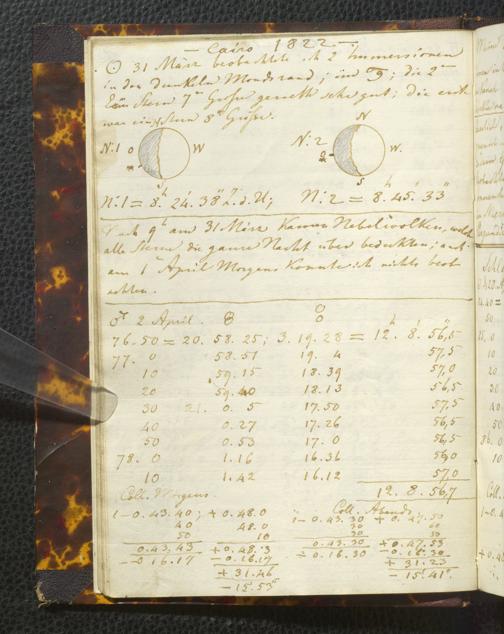 — Cairo 1822 —
☉ 31 März beobachtete ich 2 Immersionen
in den dunkeln Mondrand; im ♋; die 2te
Ein Stern 7r Größe gerieth sehr gut; die erste
war ein Stern 8r Größe.
N N
N:1 O W N:2 O W.
S S
N:1 = 8h. 24'. 38". d. U; N:2 = 8h. 45'. 33"
Nach 9h am 31 März kamen Nebelwolken, welche
alle Sterne die ganze Nacht über bedeckten; auch
am 1 April Morgens konnte ich nichts beob
achten.
♂ 2 April.
76.50 = 20. 58. 25; 3. 19. 28 = 12. 8. 56,5
77. 0 58. 51 19. 4 57,5
10 59. 15 18. 39 57,0
20 59. 40 18. 13 56,5
30 21. 0. 5 17. 50 57,5
40 0. 27 17. 26 56,5
50 0. 53 17. 0 56,5
78. 0 1. 16 16. 36 56,0
10 1. 42 16. 12 57,0
12. 8. 56,7
Coll. Morgens. Coll. Abends
1 - 0. 43. 40; + 0. 48. 0 1 - 0. 43. 30 + 0. 47. 50
40 48. 0 30
50 10 30
0. 43. 43 + 0. 48. 3 0. 43. 30 + 0. 47. 53
- 0 16. 17 - 0. 16. 17 ÷ 0. 16. 30 - 0. 16. 30
+ 31. 46 + 31. 23
- 15. 53" - 15. 41"